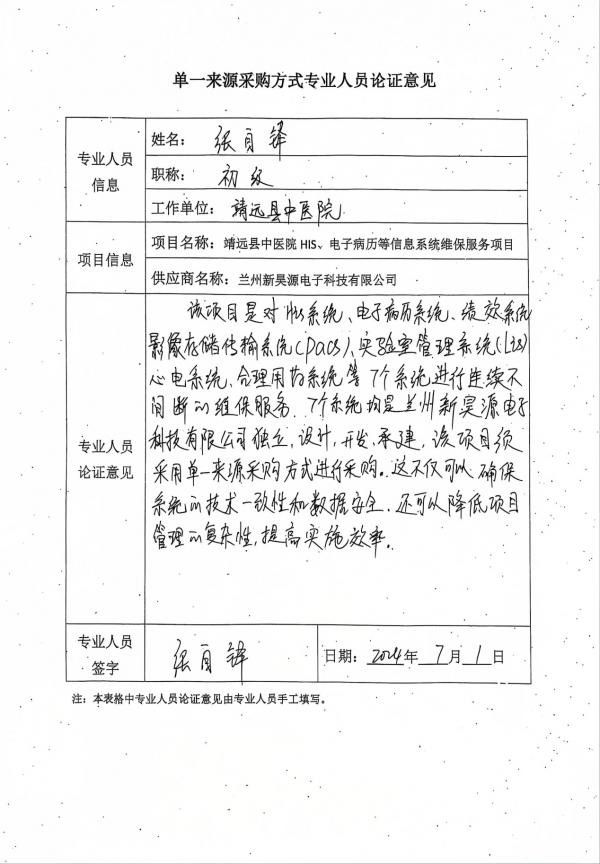 单一来源采购方式专业人员论证意见
专业人员
信息
姓名：张自锋
职称：初级
工作单位：靖远县中医院
项目信息
项目名称：靖远县中医院 HIS、电子病历等信息系统维保服务项目
供应商名称：兰州新昊源电子科技有限公司
专业人员
论证意见
该项目是对His系统、电子病历系统、绩效系统
影像存储传输系统(pacs)、实验室管理系统(Lis)
心电系统、合理用药系统等7个系统进行连续不
间断的维保服务.7个系统均是兰州新昊源电子
科技有限公司独立,设计,开发,承建,该项目须
采用单一来源采购方式进行采购。这不仅可以确保
系统的技术一致性和数据安全.还可以降低项目
管理的复杂性,提高实施效率。
专业人员
签字
张自锋
日期：2024年 7月1日
注：本表格中专业人员论证意见由专业人员手工填写。